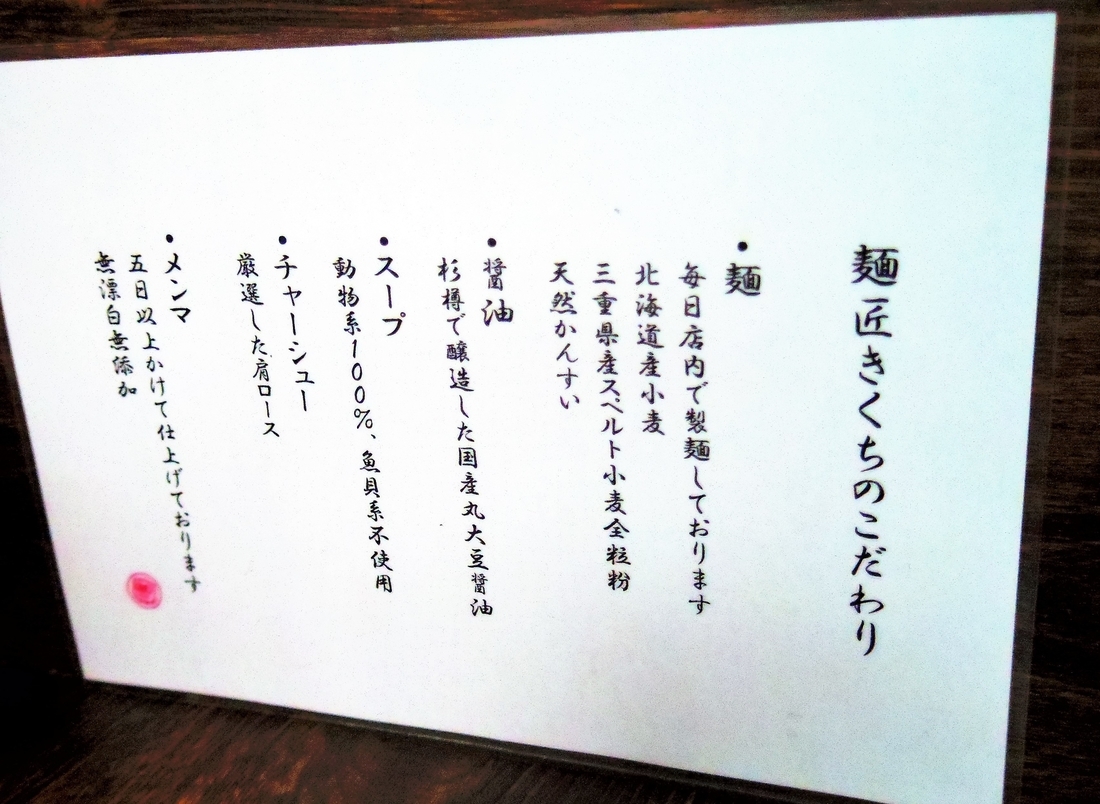 麺匠きくちのこだわり
・麺
毎日店内で製麺しております
北海道産小麦
三重県産スペルト小麦全粒粉
天然かんすい
・醤油
杉樽で醸造した国産丸大豆醤油
・スープ
動物系100%、魚貝系不使用
・チャーシュー
厳選した肩ロース
・メンマ
五日以上かけて仕上げております
無漂白無添加